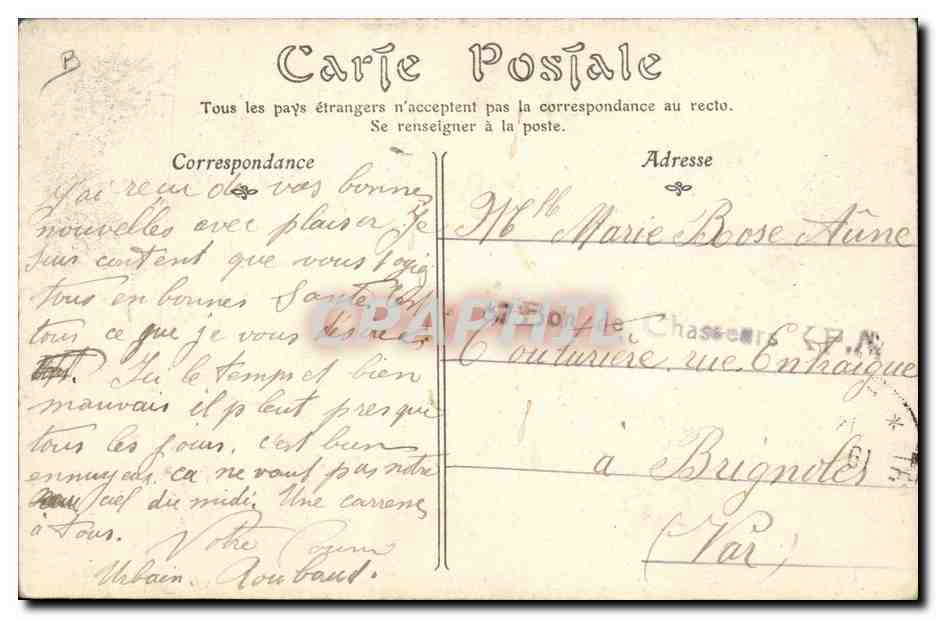 B
Carte Postale
Tous les pays étrangers n'acceptent pas la correspondance au recto.
Se renseigner à la poste.
Correspondance
J'ai reçu de vos bonnes
nouvelles avec plaiser Je
suis content que vous soyie
tous en bonnes Santé C'est
tous ce que je vous
Ici le temps et bien
mauvais il pleut presque
tous les jours. c'est bien
ennuyeas ca ne vaut pas notre
ciel du midi. Une carresse
à Tous.
Votre Cousin
Urbain. Roubaud.
Adresse
Mlle Marie Rose Aûne
Bon de Chasseurs
Couturière rue Entraigue
à Brignoles
(Var)
CPAPHIL